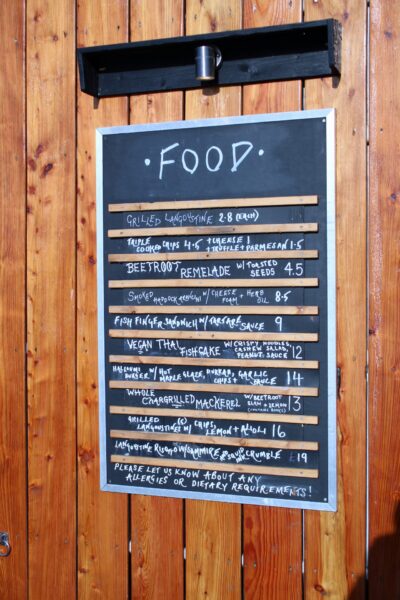 · FOOD ·
GRILLED LANGOUSTINE 2.8 (EACH)
TRIPLE COOKED CHIPS 4.5 + CHEESE 1
+ TRUFFLE + PARMESAN 1.5
BEETROOT REMELADE W/ TOASTED
SEEDS 4.5
SMOKED HADDOCK W/ CHEESE
FOAM + HERB OIL 8.5
FISH FINGER SANDWICH W/ TARTARE
SAUCE 9
VEGAN THAI FISHCAKE W/ CRISPY NOODLES,
CASHEW SALAD,
PEANUT SAUCE 12
HALLOUMI BURGER W/ HOT MAPLE GLAZE, GARLIC
CHIPS + SAUCE 14
WHOLE
CHARGRILLED MACKEREL W/ BEETROOT
SLAW + LEMON 13
(CONTAINS BONES)
GRILLED
LANGOUSTINES W/ CHIPS,
LEMON + AIOLI 16
LANGOUSTINE W/ SAMPHIRE CRUMBLE 19
PLEASE LET US KNOW ABOUT ANY
ALLERGIES OR DIETARY REQUIREMENTS!